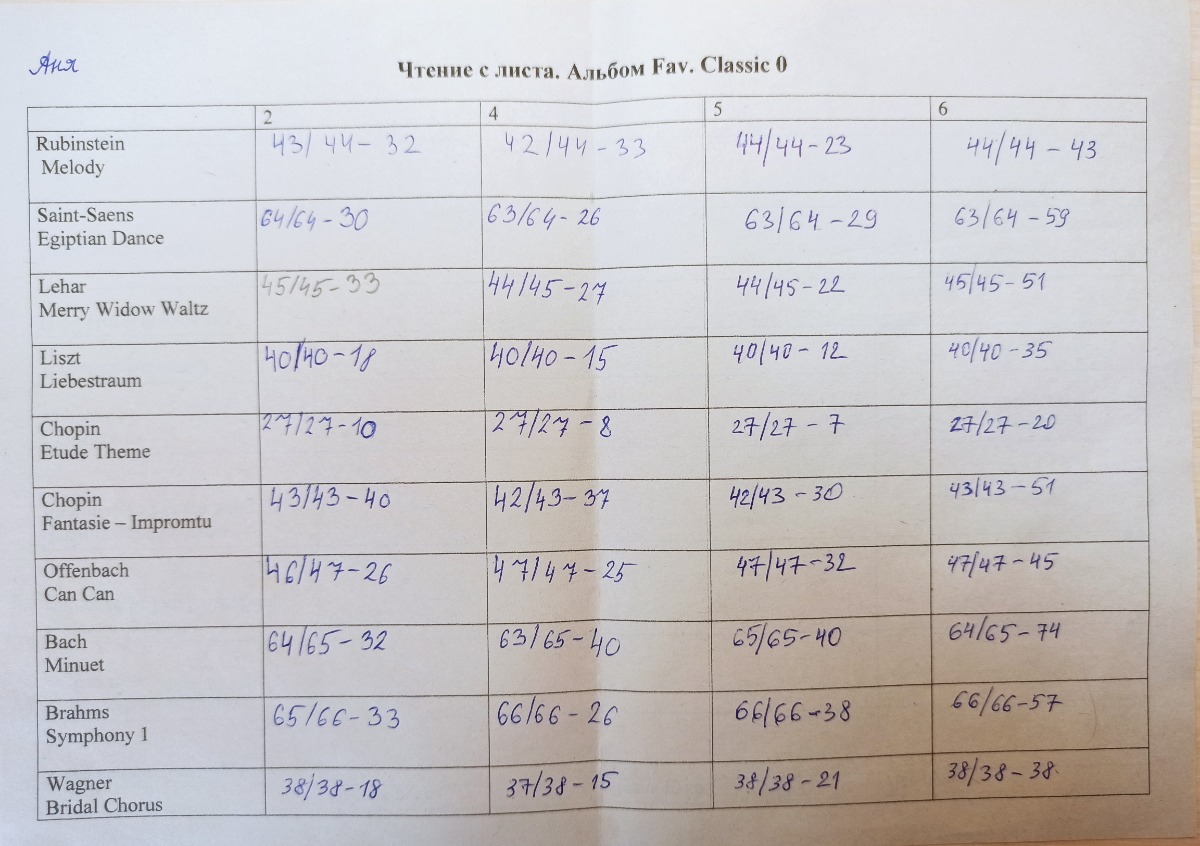 Аня
Чтение с листа. Альбом Fav. Classic 0
2 4 5 6
Rubinstein 43/44 - 32 42/44 - 33 44/44 - 23 44/44 - 43
Melody
Saint-Saens 64/64 - 30 63/64 - 26 63/64 - 29 63/64 - 59
Egiptian Dance
Lehar 45/45 - 33 44/45 - 27 44/45 - 22 45/45 - 51
Merry Widow Waltz
Liszt 40/40 - 18 40/40 - 15 40/40 - 12 40/40 - 35
Liebestraum
Chopin 27/27 - 10 27/27 - 8 27/27 - 7 27/27 - 20
Etude Theme
Chopin 43/43 - 40 42/43 - 37 42/43 - 30 43/43 - 51
Fantasie – Impromtu
Offenbach 46/47 - 26 47/47 - 25 47/47 - 32 47/47 - 45
Can Can
Bach 64/65 - 32 63/65 - 40 65/65 - 40 64/65 - 74
Minuet
Brahms 65/66 - 33 66/66 - 26 66/66 - 38 66/66 - 57
Symphony 1
Wagner 38/38 - 18 37/38 - 15 38/38 - 21 38/38 - 38
Bridal Chorus